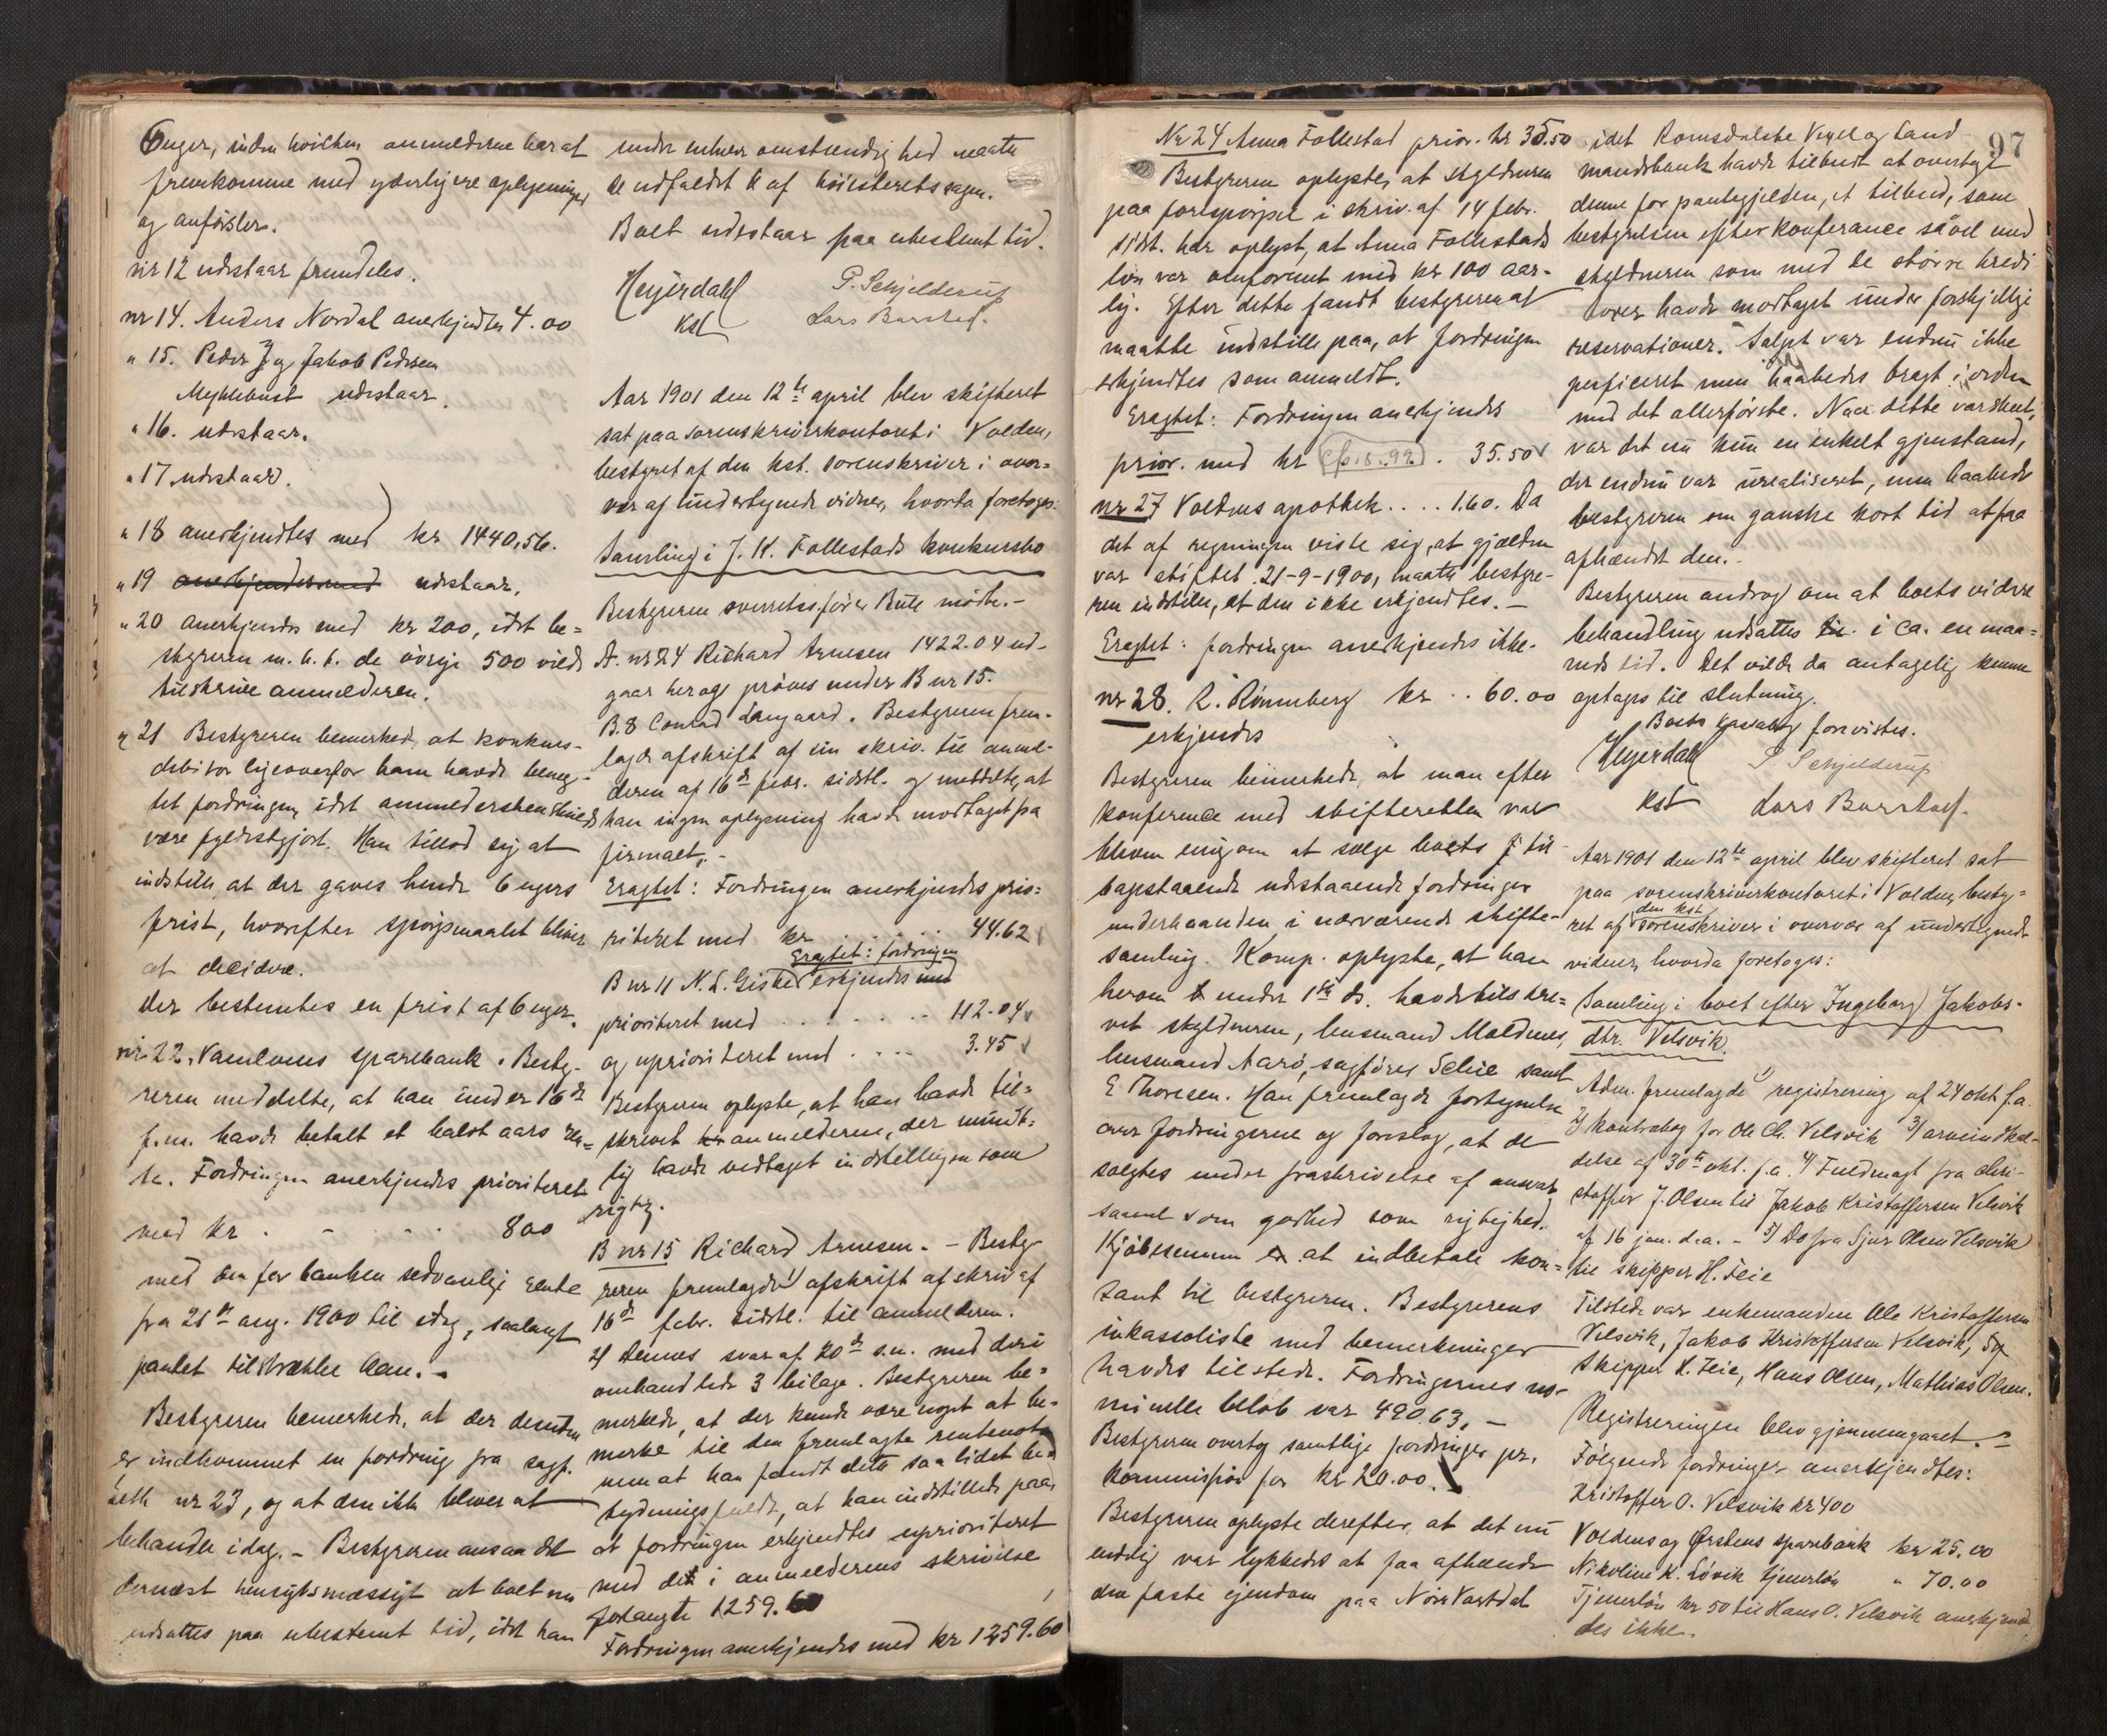 6 uger, inden hvilken anmelderne har at
fremkomme med yderligere oplysninger
og anførsler.
nr 12 udstaar fremdeles.
nr 14. Anders Nordal anerkjendtes 4.00
" 15. Peder J og Jakob Pedersen
Myklebust udstaar.
" 16. udstaar.
" 17 udstaar.
" 18 anerkjendtes med kr 1440,56.
" 19 anerkjendes med udstaar.
" 20 anerkjendes med kr 200, idet be=
styreren m. h. t. de øvrige 500 vilde
tilskrive anmelderen.
" 21 Bestyreren bemerkede, at konkurs-
debitor ligeoverfor ham havde beneg-
tet fordringen, idet anmeldersken skulde
være fyldestgjort. Han tillod sig at
indstille, at der gaves hende 6 ugers
frist, hvorefter spørgsmaalet bliver
at decidere.
Der bestemtes en frist af 6 uger.
nr 22. Vanlvens sparebank. Besty-
reren meddelte, at han under 16de
f.m. havde betalt et halvt aars ren=
te. Fordringen anerkjendes prioriteret
med kr . - . . . 800
med den for banken sedvanlig rente
fra 21de aug. 1900 til idag, saalangt
pantet tilstrækker kan. -
Bestyreren bemerkede, at der desuden
er indkommet en fordring fra sagf.
Seth nr 23, og at den ikke bliver at
behandle idag. - Bestyreren ansaa det
dernæst hensigtsmæssigt at boet nu
udsattes paa ubestemt tid, idet han
under enhver omstændighed maatte
se udfaldet af høiesteretssagen.
Boet udestaar paa ubestemt tid.
Heyerdahl P. Schjelderup
kst Lars Barstad.
Aar 1901 den 12te april blev skifteret
sat paa sorenskriverkontoret i Volden,
bestyret af den kst. sorenskriver i over=
vær af undertegnede vidner, hvorda foretoges:
Samling i J. K. Follestads konkursbo
Bestyreren overretssfører Bule mødte. -
A. nr 24 Richard Arnesen 1422.04 ud-
gaar her og prøves under B nr 15.
B. 8 Conrad Langaard. Bestyreren frem-
lagde afskrift af sin skriv. til anmel-
deren af 16de febr. sidstl. og meddelte, at
han ingen oplysning havde modtaget fra
firmaet. -
Eragtet: Fordringen anerkjendes prio=
riteret med kr . . . 44.62
Eragtet: fordringen
B nr 11 N. L. Giske erkjendes med
prioriteret med . . . . . . 112.04
og uprioriteret med . . . . 3.45
Bestyreren oplyste, at han havde til=
skrevet anmelderen, der mundt=
lig havde vedtaget indstillingen som
rigtig.
B nr 15 Richard Arnesen. - Besty-
reren fremlagde 1) afskrift af skriv af
16de febr. sidstl. til anmelderen.
2) Dennes svar af 20de s.m. med deri
omhandlede 3 bilage. Bestyreren be=
merkede, at der kunde være noget at be-
merke til den fremlagte rentenota
men at han fandt dette saa lidet be=
tydningsfuldt, at han indstillede paa,
at fordringen erkjendtes uprioriteret
med det i anmelderens skrivelse
forlangte 1259.60
Fordringen anerkjendes med kr 1259.60
97
Nr 24 Anna Follestad prior. kr 35.50
Bestyreren oplyste, at skyldneren
paa forespørgsel i skriv. af 14 febr.
sidst. har oplyst, at Anna Follestads
løn var omforenet med kr 100 aar-
lig. Efter dette fandt bestyreren at
maatte indstille paa, at fordringen
erkjendtes som anmeldt.
Eragtet: Fordringen anerkjendes
prior. med kr . 35.50
nr 27 Voldens apothek . . . . 1.60. Da
det af regningen viste sig, at gjælden
var stiftet 21-9-1900, maatte bestyre-
ren indstille, at den ikke erkjendtes. -
Eragtet: fordringen anerkjendes ikke.
nr 28. R. Rønneberg kr . . 60.00
erkjendes
Bestyreren bemerkede, at man efter
konference med skifteretten var
bleven enig om at sælge boets til-
bagestaaende udestaaende fordringer
underhaanden i nærværende skifte-
samling. Komp. oplyste, at han
herom under 1ste ds. havde tilskre=
vet skyldneren, husmand Maldenes,
husmand Aarø, sagfører Selie samt
E Thoresen. Han fremlagde fortegnelse
over fordringerne og foreslog, at de
solgtes under fraskrivelse af ansvar
saavel som godhed som rigtighed.
Kjøbesummen er at indbetale kon=
tant til bestyreren. Bestyrerens
inkassoliste med bemerkninger
havdes tilstede. Fordringernes no-
minelle beløb var 490 63, -
Bestyreren overtog samtlige fordringer per.
kommission for kr 20.00.
Bestyreren oplyste derefter, at det nu
endelig var lykkedes at faa afhændet
den faste eiendom paa Nørvartdal
idet Romsdalske Vexel og Land-
mandsbank havde tilbudt at overtage
denne for pantegjelden, et tilbud, som
bestyrelsen efter konferance såvel med
skyldneren som med de større kredi
torer havde modtaget under forskjellige
reservationer. Salget var endnu ikke
perficeret men haabedes bragt i orden
med det allerførste. Naar dette var skeet,
var det nu kun en enkelt gjenstand,
der endnu var urealiseret, men haabede
bestyreren om ganske kort tid at faa
afhændet den. -
Bestyreren androg om at boets videre
behandling udsattes i ca. en maa=
neds tid. Det vilde da antagelig kunne
optages til slutning.
Boets kassabog forevistes.
Heyerdahl P Schjelderup
kst Lars Barstad.
Aar 1901 den 12te april blev skifteret sat
paa sorenskriverkontoret i Volden, besty=
ret af den kst sorenskriver i overvær af undertegnede
vidner, hvorda foretoges:
Samling i boet efter Ingeborg Jakobs-
dtr. Velsvik.
Adm. fremlagde 1) registrering af 24 okt f.a.
2) kontrabog for Ole Ch. Velsvik 3) arveindkal-
delse af 30te okt. f.a. 4) Fuldmagt fra Chri-
stoffer J. Olsen til Jakob Kristoffersen Velsvik
af 16 jan. d.a. - 5) Do fra Sjur Olsen Velsvik
til skipper H. Feie
Tilstede var enkemanden Ole Kristoffersen
Velsvik, Jakob Kristoffersen Velsvik,
Skipper H. Feie, Hans Olsen, Mathias Olsen.
Registreringen blev gjennemgaaet. -
Følgende fordringer anerkjendtes:
Kristoffer O. Velsvik kr 400
Voldens og Ørstens sparebank kr 25.00
Nikoline K. Løvik tjenerløn " 70.00
Tjenerløn kr 50 til Hans O. Velsvik anerkjend
tes ikke.